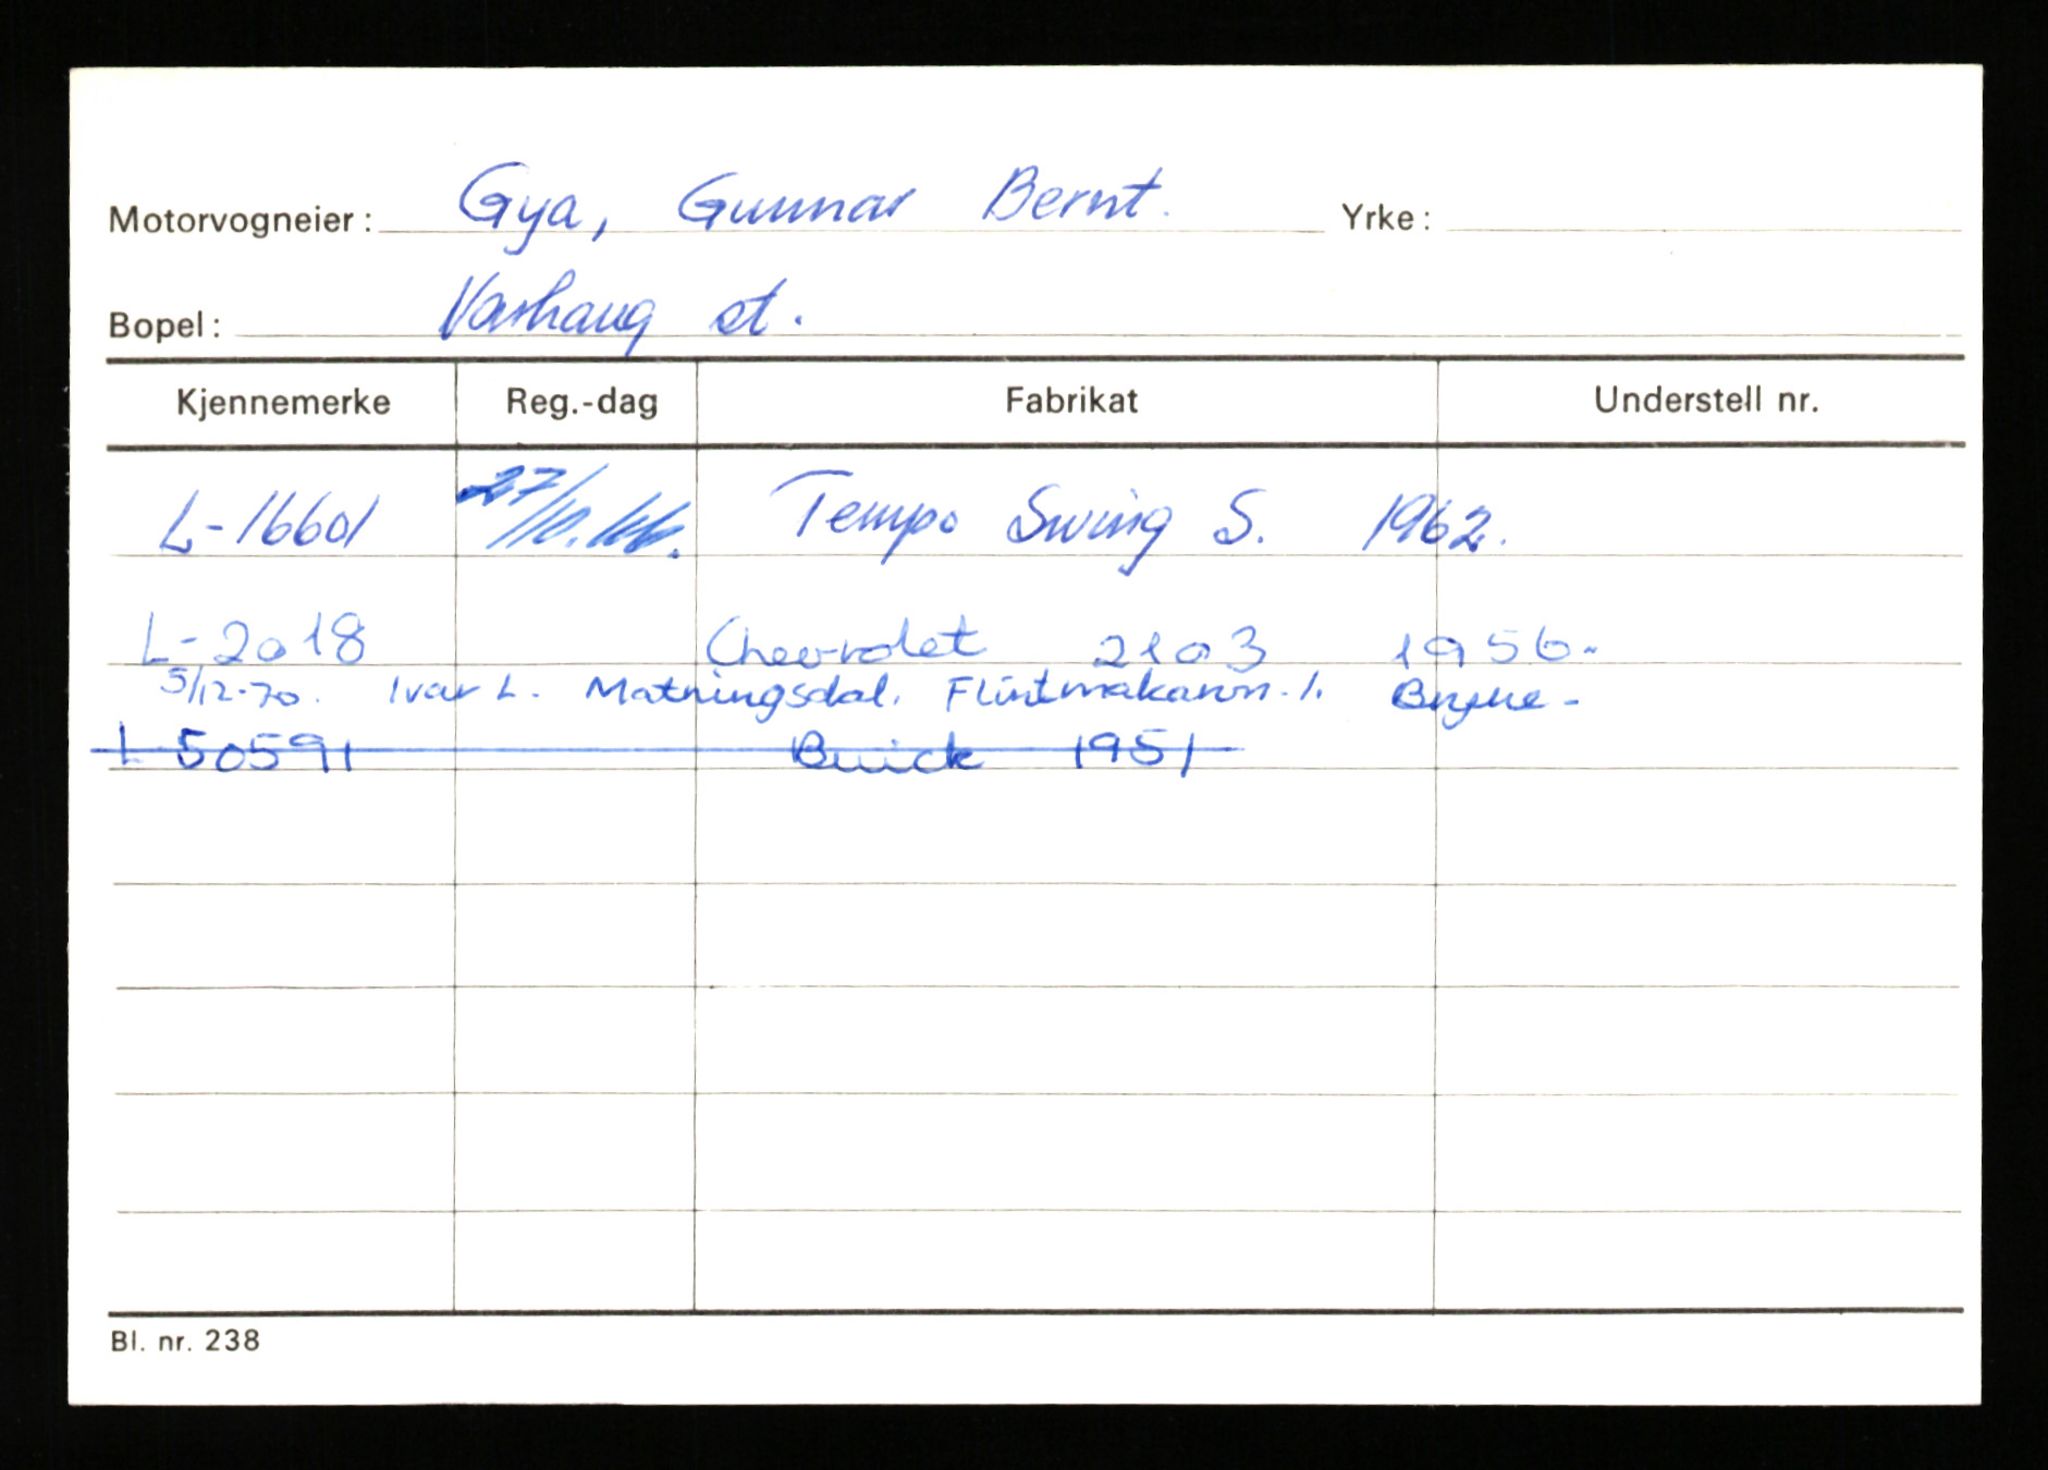 Motorvogneier: Gya, Gunnar Bernt. Yrke:
Bopel: Varhaug st.
Kjennemerke Reg.-dag Fabrikat Understell nr.
L-16601 27/10.66. Tempo Swing S. 1962.
L-2018 Chevrolet 2103 1956.
5/12-70. Ivar L. Matningsdal, Flintmakarvn. 1. Bryne-
L 50591 Buick 1951
Bl. nr. 238